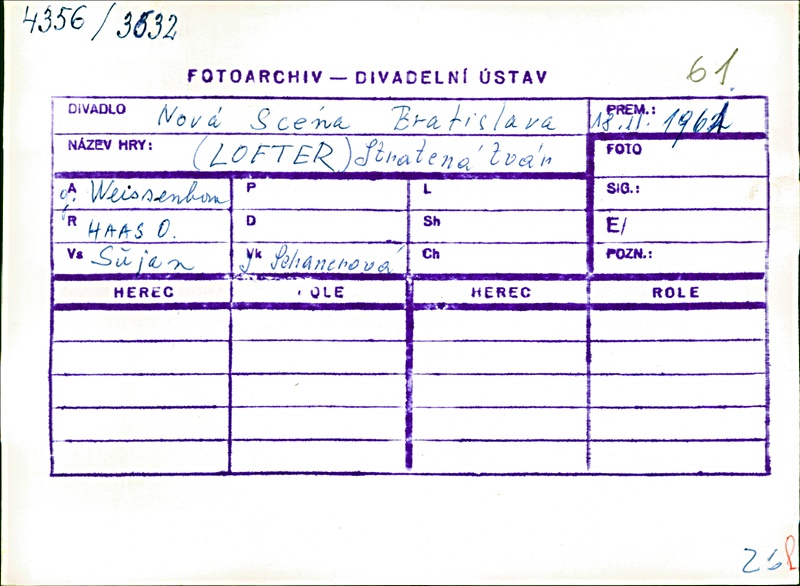 4356/3632
FOTOARCHIV — DIVADELNÍ ÚSTAV
61.
DIVADLO Nová Scéna Bratislava
PREM.: 18.11. 1961
NÁZEV HRY: (LOFTER) Stratená tvár
FOTO
A g. Weissenborn
P
L
SIG.:
R HAAS O.
D
Sh
E/
Vs Šujan
Vk
Ch
POZN.:
HEREC OLE HEREC ROLE